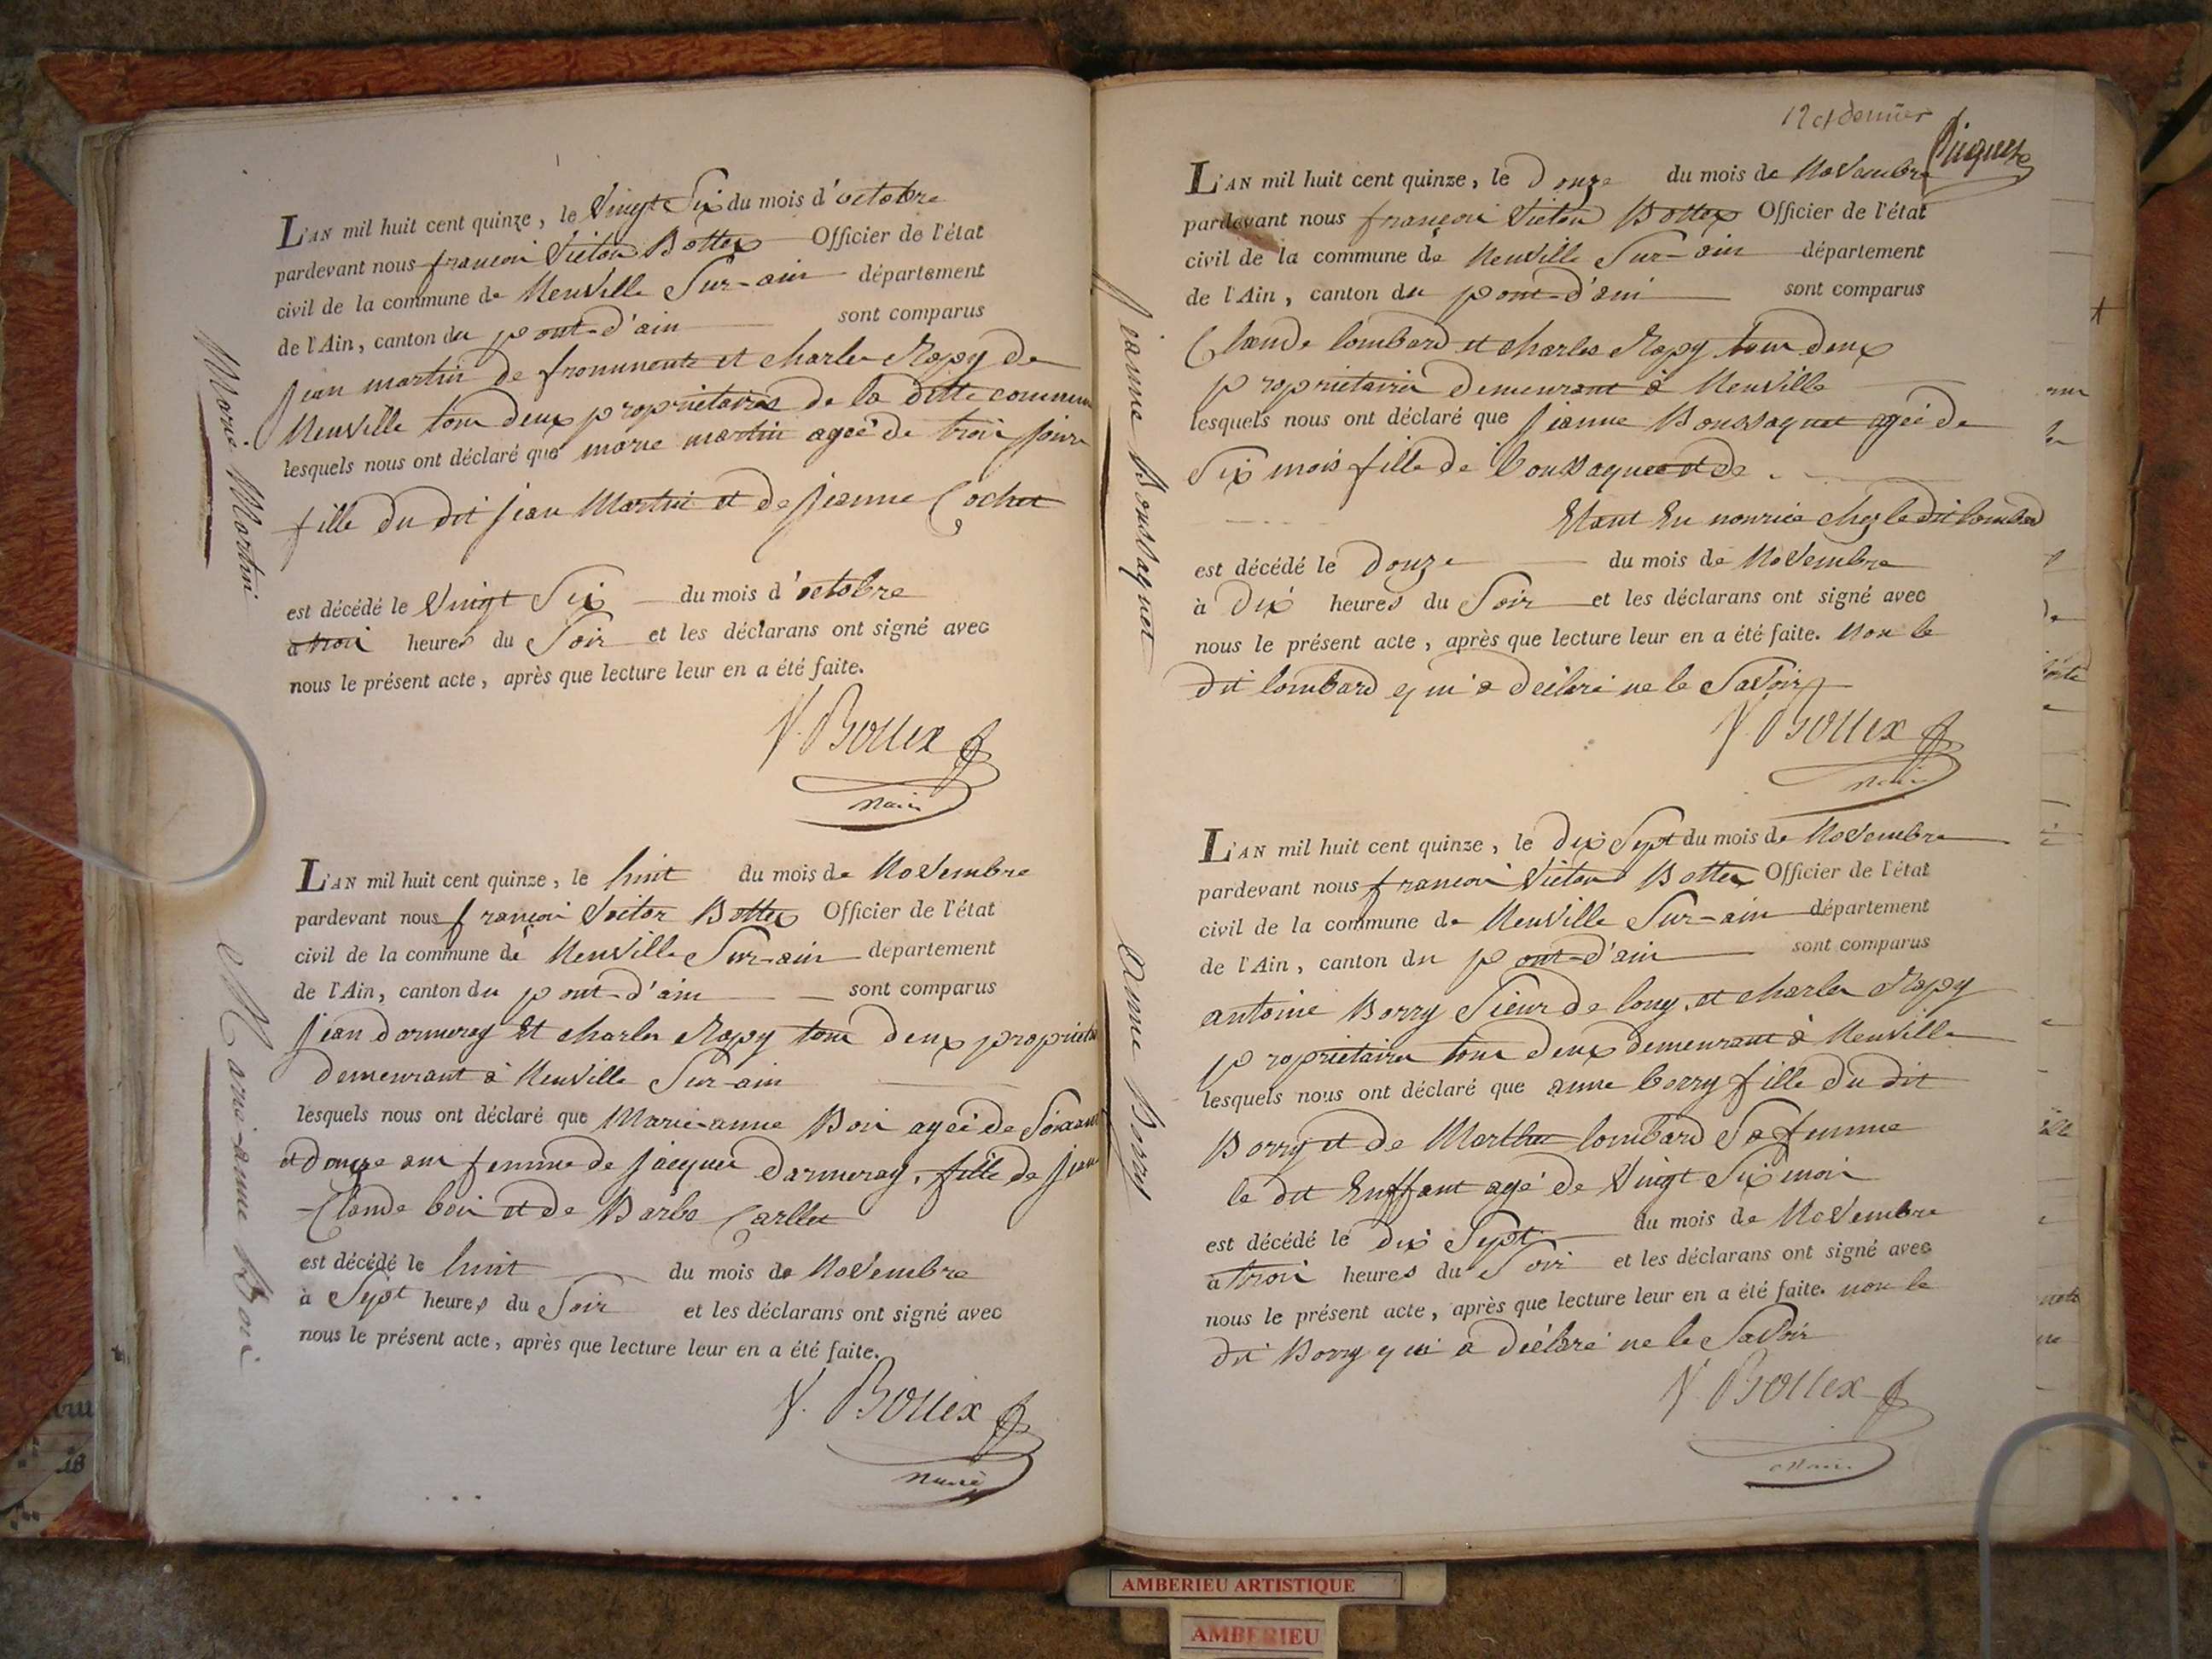 Marie Martin
L'AN mil huit cent quinze, le Vingt Six du mois d'octobre
pardevant nous françois Victor Bottex Officier de l'état
civil de la commune de Neuville Sur-ain département
de l'Ain, canton du pont-d'ain sont comparus
Jean martin de frommente et charles Rapy de
Neuville tous deux propriétaires de la ditte commune
lesquels nous ont déclaré que marie martin ageé de trois jours
fille du dit Jean Martin et de Jeanne Cochet
est décédé le Vingt Six du mois d'octobre
a trois heures du Soir et les déclarans ont signé avec
nous le présent acte, après que lecture leur en a été faite.
V. Bottex
Maire
Marie-anne Boi
L'AN mil huit cent quinze, le huit du mois de Novembre
pardevant nous françois Victor Bottex Officier de l'état
civil de la commune de Neuville Sur-ain département
de l'Ain, canton du pont-d'ain sont comparus
Jean darmeray Et charles Rapy tous deux proprietai
demeurant à Neuville Sur-ain
lesquels nous ont déclaré que Marie-anne Boi ageé de Soixant
et douze ans femme de Jacques Darmeray, fille de Jean
Claude boi et de Barbe Carllet
est décédé le huit du mois de Novembre
à Sept heures du Soir et les déclarans ont signé avec
nous le présent acte, après que lecture leur en a été faite.
V. Bottex
Maire
12 et dernier
L'AN mil huit cent quinze, le Douze du mois de Novembre
pardevant nous françois Victor Bottex Officier de l'état
civil de la commune de Neuville Sur-ain département
de l'Ain, canton du pont-d'ain sont comparus
Claude lombard et charles Rapy tous deux
propriétaires demeurant à Neuville
Jeanne Boussaquet
lesquels nous ont déclaré que Jeanne Boussaquet ageé de
Six mois fille de boussaquet et de
Etant En nourice chez le dit lombard
est décédé le Douze du mois de Novembre
à Dix heures du Soir et les déclarans ont signé avec
nous le présent acte, après que lecture leur en a été faite. Non le
dit lombard qui a déclaré ne le Savoir
V. Bottex
Maire
L'AN mil huit cent quinze, le Dix Sept du mois de Novembre
pardevant nous françois Victor Bottex Officier de l'état
civil de la commune de Neuville Sur-ain département
de l'Ain, canton du pont-d'ain sont comparus
antoine Borry Sieur de long, et charles Rapy
propriétaires tous deux demeurant à Neuville
Anne Borry
lesquels nous ont déclaré que anne borry fille du dit
Borry et de Marthe lombard Sa femme
le dit Enffant agé de Vingt Six mois
est décédé le dix Sept du mois de Novembre
a trois heures du Soir et les déclarans ont signé avec
nous le présent acte, après que lecture leur en a été faite. non le
dit Borry qui a déclaré ne le Savoir
V. Bottex
Maire
AMBERIEU ARTISTIQUE
AMBERIEU